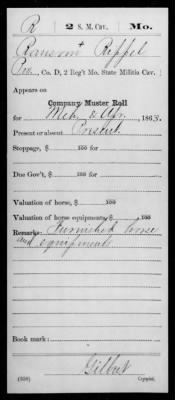 R 2 S. M. Cav. Mo.
Ransom + Riffel
Pri., Co. D, 2 Reg't Mo. State Militia Cav.
Appears on
Company Muster Roll
for Mch & Apr, 1863.
Present or absent Present
Stoppage, $ 100 for
Due Gov't, $ 100 for
Valuation of horse, $ 100
Valuation of horse equipments, $ 100
Remarks: Furnished horse
and equipments
Book mark:
Gilbert
(358) Copyist.